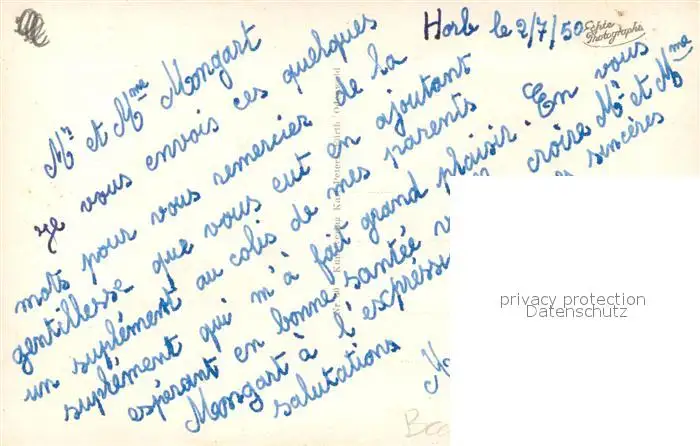 Horb le 2/7/50
Echte Photographie
Mr et Mme Mongart
je vous envois ces quelques
mots pour vous remercier de la
gentillesse que vous eut en ajoutant
un suplément au colis de mes parents
suplément qui m'à fait grand plaisir. En vous
espérant en bonne santée croire Mr. et Mme
Mongart à l'expréssi sincères
salutations
privacy protection
Datenschutz